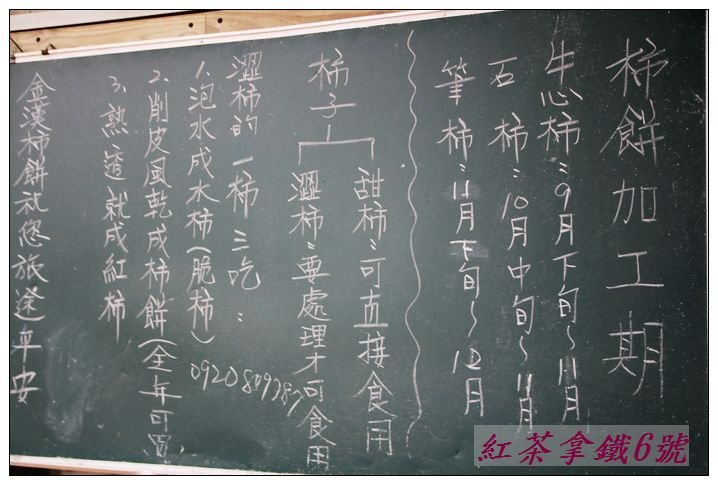 柿餅加工期
牛心柿：9月下旬～11月
石柿：10月中旬～11月
筆柿：11月下旬～12月
柿子
甜柿：可直接食用
澀柿：要處理才可食用
澀柿的一柿三吃：
1.泡水成水柿(脆柿)
2.削皮風乾成柿餅(全年可買
3.熟透就成紅柿
0920809287
金漢柿餅祝您旅途平安
紅茶拿鐵6號